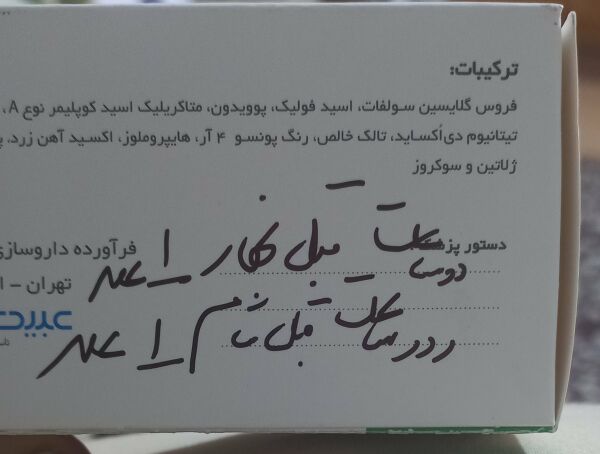 ترکیبات:
فروس گلایسین سولفات، اسید فولیک، پوویدون، متاکریلیک اسید کوپلیمر نوع A،
تیتانیوم دی‌اُکساید، تالک خالص، رنگ پونسو ۴ آر، هایپروملوز، اکسید آهن زرد،
ژلاتین و سوکروز
دستور پزشک
فرآورده داروسازی
تهران - ا
دو ساعت قبل نهار ۱ عدد
دو ساعت قبل شام ۱ عدد
عبید